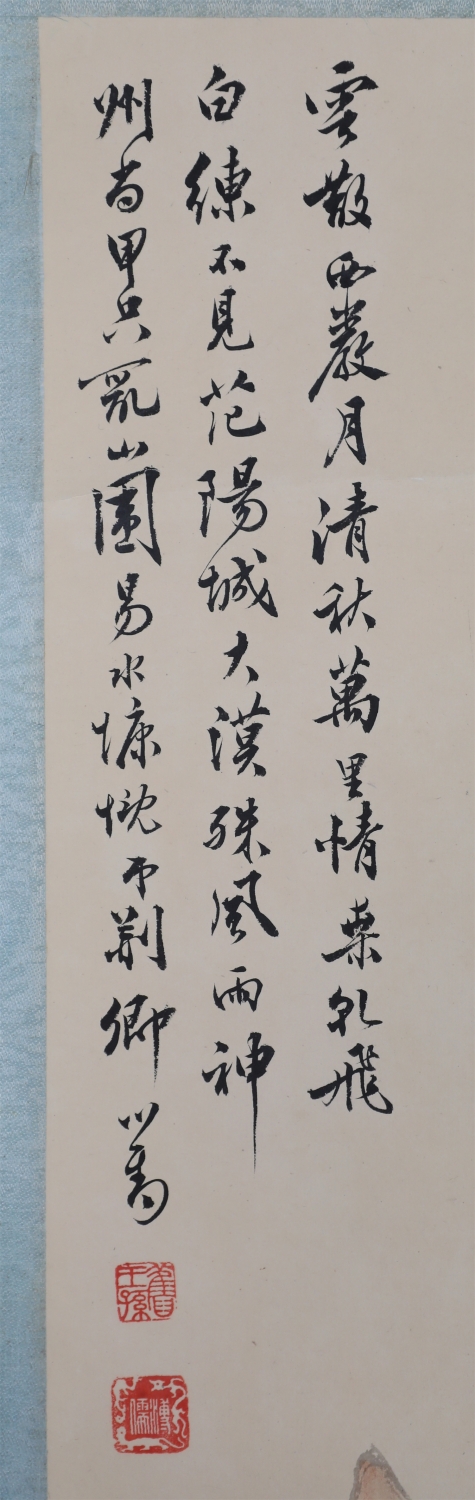 雲散西巖月清秋萬里情桑乾飛
白練不見范陽城大漠殊風雨神
州尚甲兵亂山圍易水慷慨弔荊卿 心畬
舊王孫
溥儒